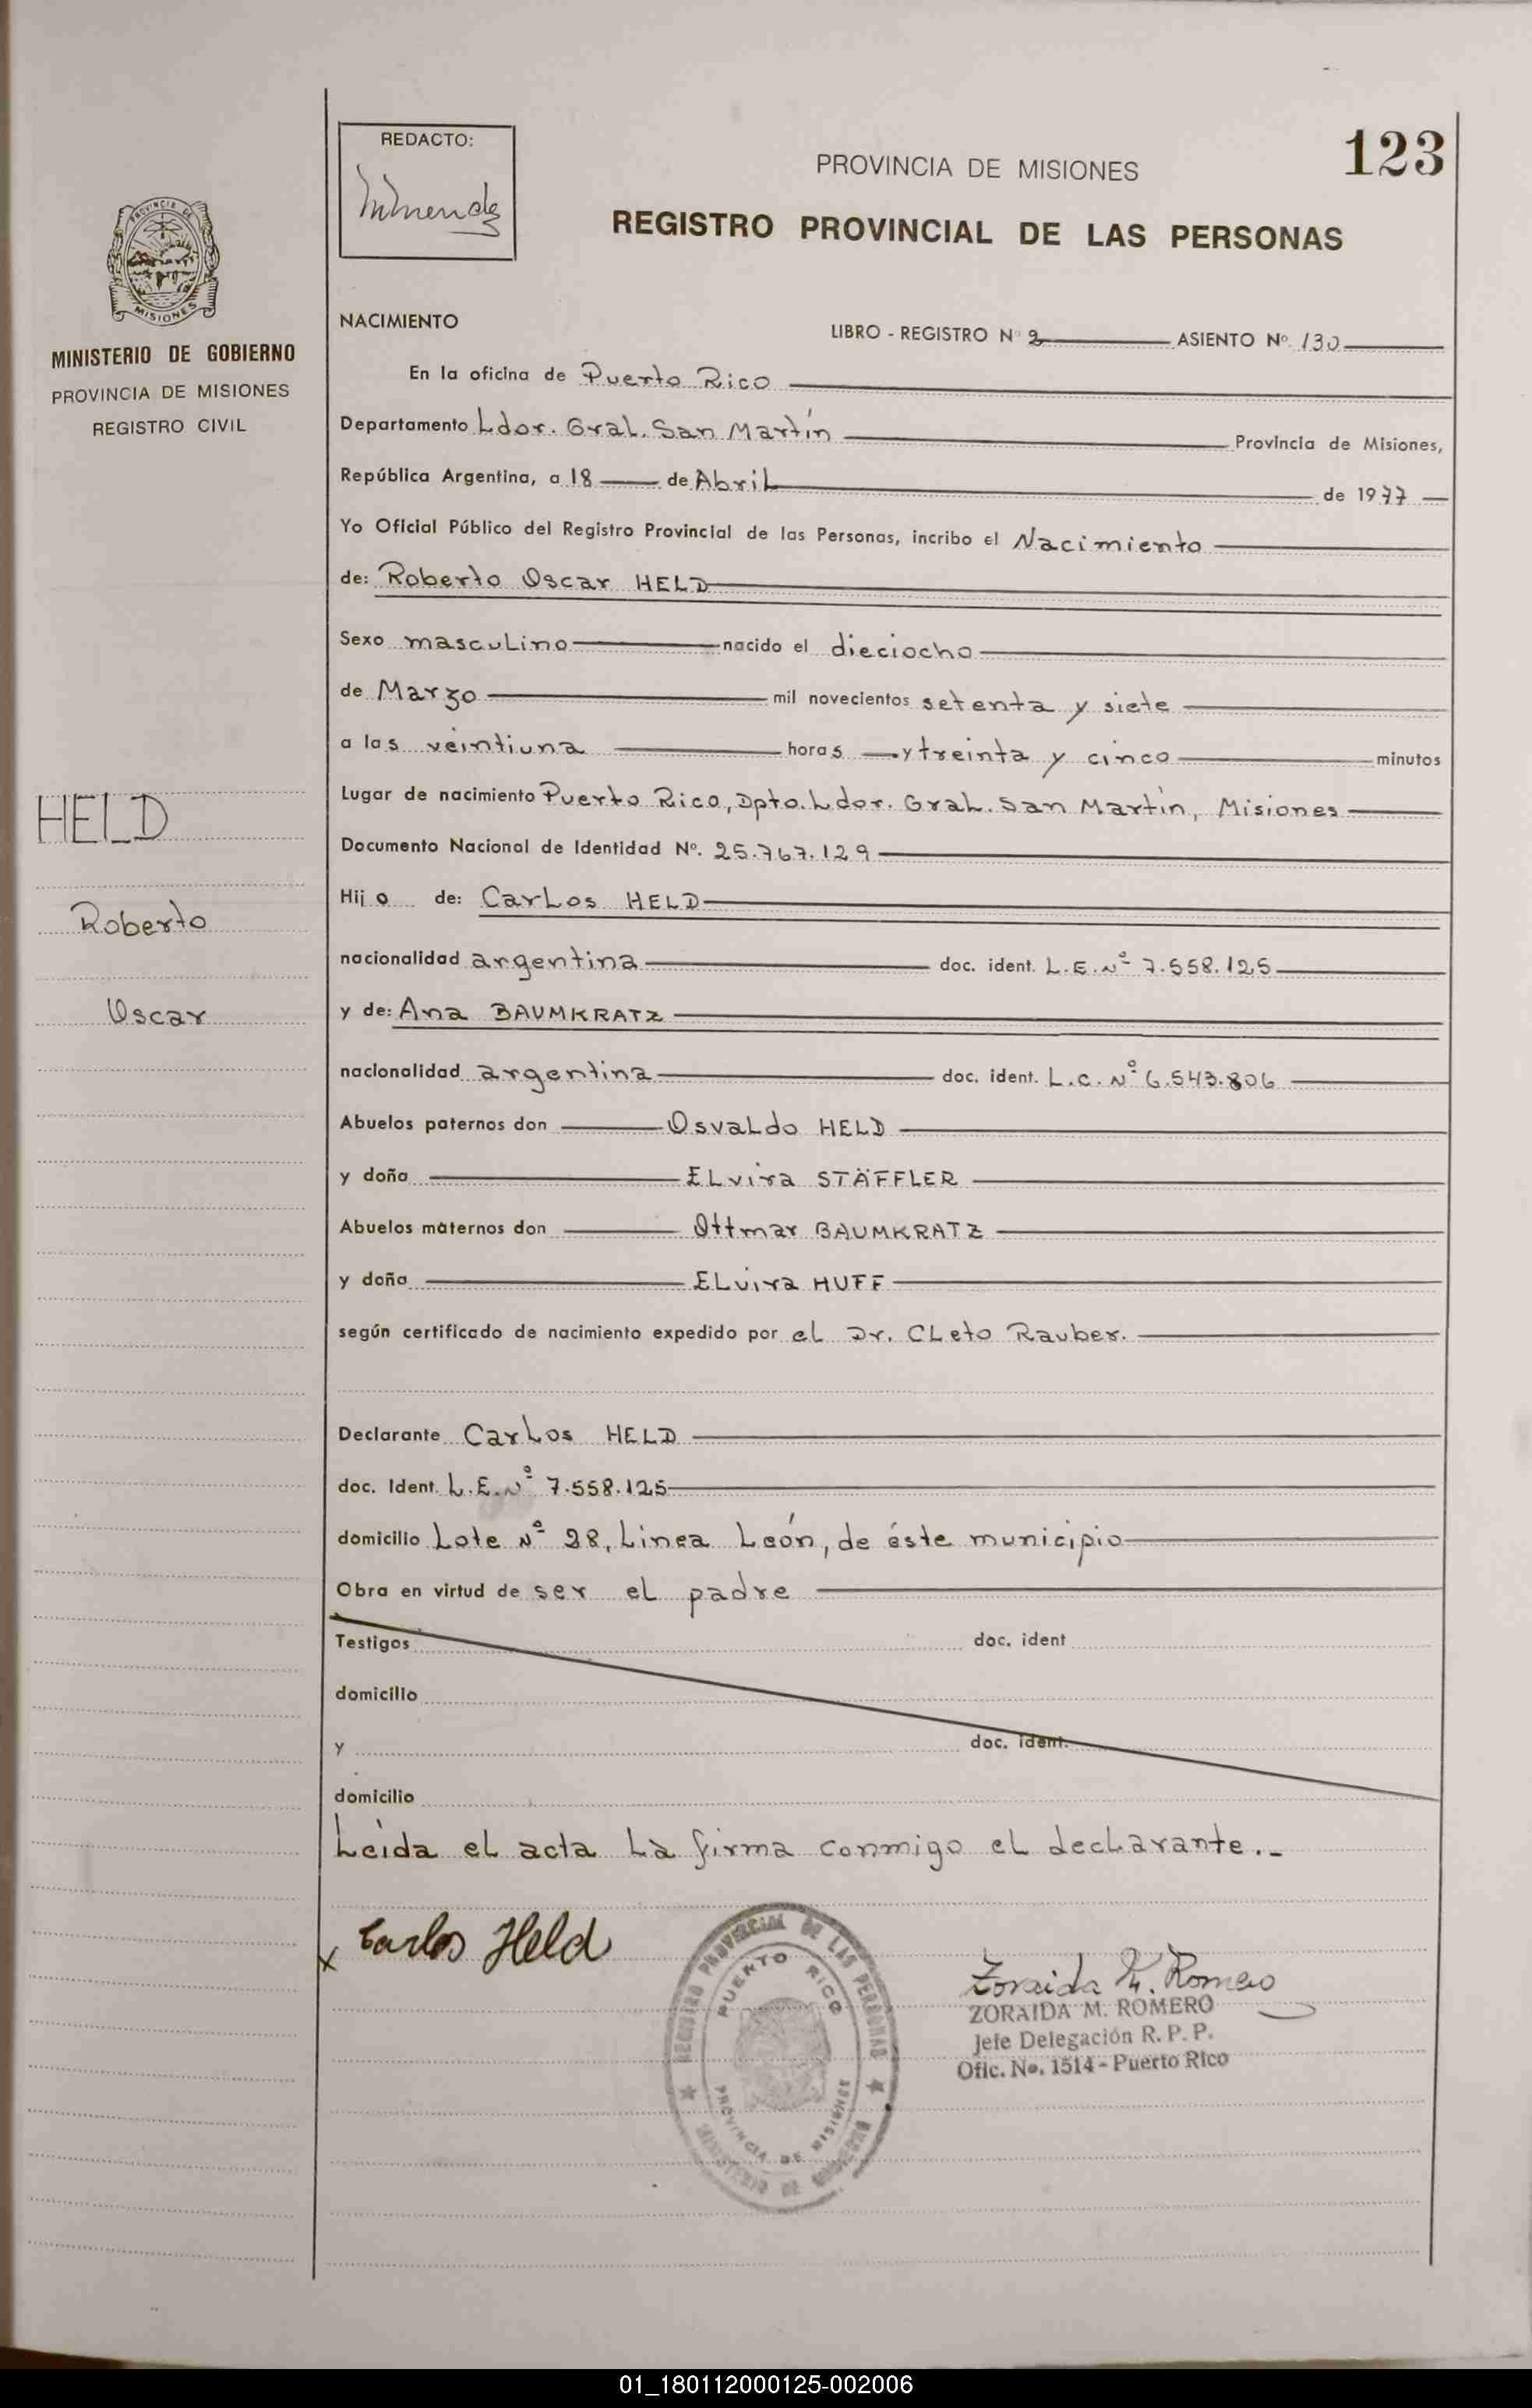 REDACTO:
123
PROVINCIA DE MISIONES
REGISTRO PROVINCIAL DE LAS PERSONAS
PROVINCIA DE
MISIONES
MINISTERIO DE GOBIERNO
PROVINCIA DE MISIONES
REGISTRO CIVIL
NACIMIENTO
LIBRO - REGISTRO Nº 2 ASIENTO Nº. 130
En la oficina de Puerto Rico
Departamento Ldor. Gral. San Martín Provincia de Misiones,
República Argentina, a 18 de Abril de 1977
Yo Oficial Público del Registro Provincial de las Personas, incribo el Nacimiento
de: Roberto Oscar HELD
Sexo masculino nacido el dieciocho
de Marzo mil novecientos setenta y siete
a las veintiuna horas y treinta y cinco minutos
Lugar de nacimiento Puerto Rico, Dpto. Ldor. Gral. San Martín, Misiones
Documento Nacional de Identidad Nº. 25.767.129
Hijo de: Carlos HELD
nacionalidad argentina doc. ident. L.E. Nº 7.558.125
y de: Ana BAUMKRATZ
nacionalidad argentina doc. ident. L.C. Nº 6.543.806
Abuelos paternos don Osvaldo HELD
y doña Elvira STÄFFLER
Abuelos maternos don Ottmar BAUMKRATZ
y doña Elvira HUFF
según certificado de nacimiento expedido por el Dr. Cleto Rauber.
Declarante Carlos HELD
doc. Ident. L.E. Nº 7.558.125
domicilio Lote Nº 28, Linea León, de éste municipio
Obra en virtud de ser el padre
Testigos doc. ident
domicilio
y doc. ident.
domicilio
Leída el acta la firma conmigo el declarante.-
HELD
Roberto
Oscar
x Carlos Held
REGISTRO PROVINCIAL DE LAS PERSONAS
PUERTO RICO
PROVINCIA DE MISIONES
MINISTERIO DE GOBIERNO
Zoraida M. Romero
ZORAIDA M. ROMERO
Jefe Delegación R. P. P.
Ofic. No. 1514 - Puerto Rico
01_180112000125-002006